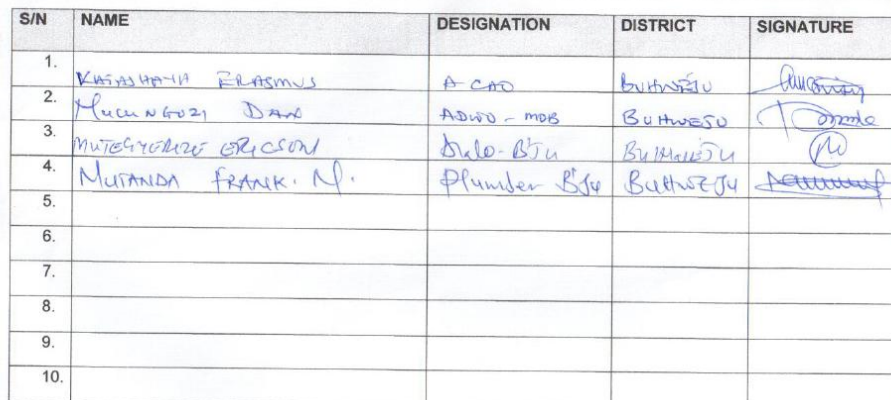 S/N NAME DESIGNATION DISTRICT SIGNATURE
1. KATASHAYA ERASMUS A CAO BUHWEJU
2. Mucunguzi DAN ADWO - MDB BUHWEJU
3. MUTEGYEREIZE ERICSON BUHWEJU
4. MUTANDA FRANK. M. Plumber B'JU BUHWEJU
5.
6.
7.
8.
9.
10.